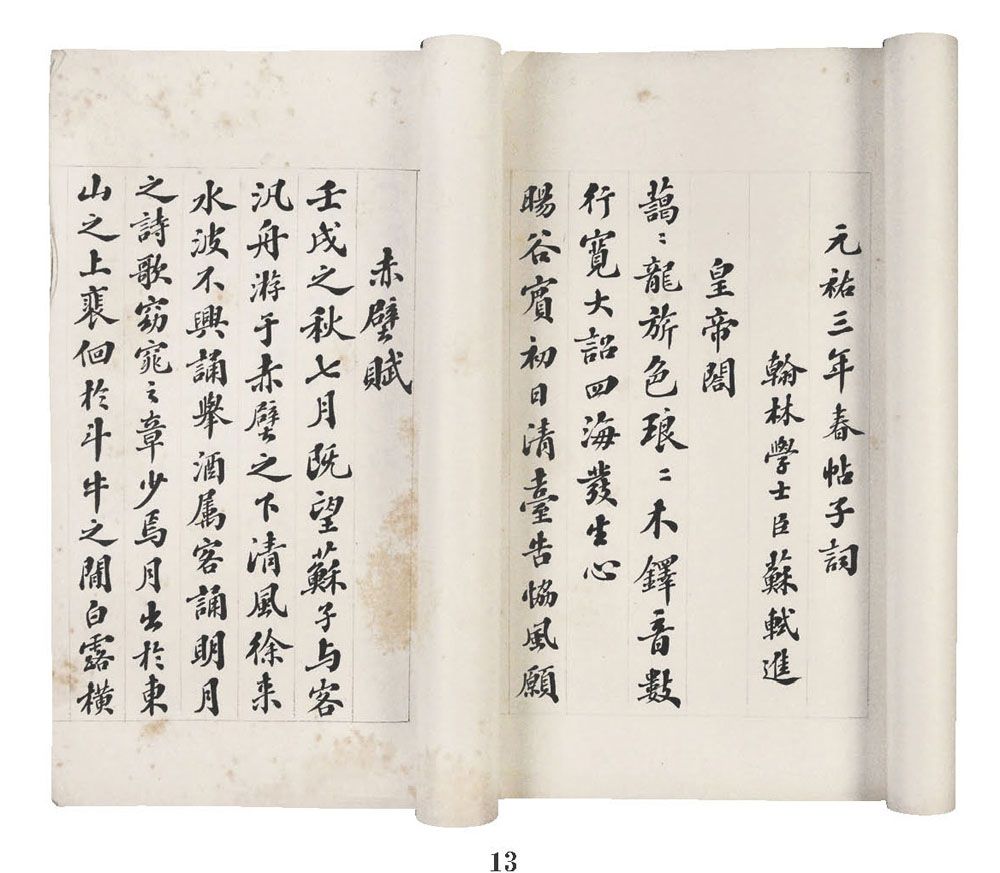 元祐三年春帖子詞
翰林學士臣蘇軾進
皇帝閤
藹〻龍旂色琅〻木鐸音數
行寬大詔四海發生心
暘谷賓初日清臺告協風願
赤壁賦
壬戌之秋七月既望蘇子与客
汎舟游于赤壁之下清風徐来
水波不興誦舉酒属客誦明月
之詩歌窈窕之章少焉月出於東
山之上裵佪於斗牛之間白露橫
13